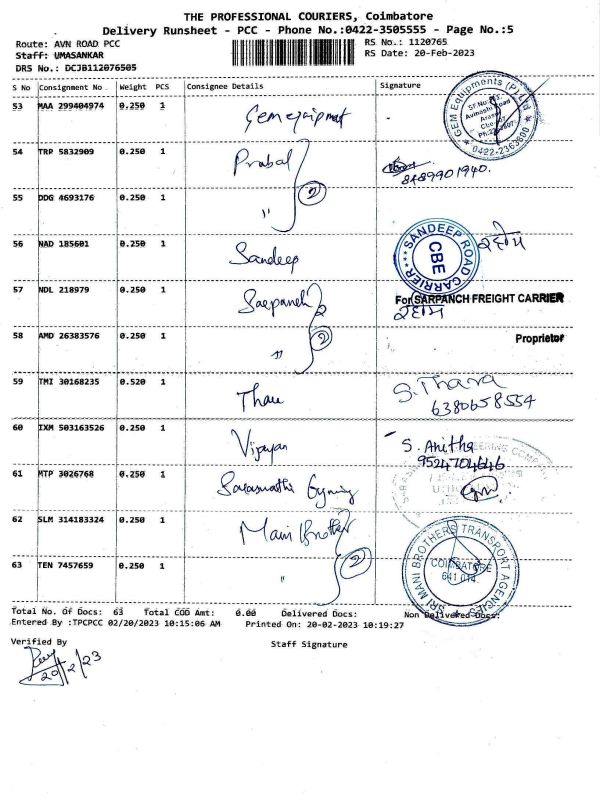 THE PROFESSIONAL COURIERS, Coimbatore
Delivery Runsheet - PCC - Phone No.:0422-3505555 - Page No.:5
Route: AVN ROAD PCC RS No.: 1120765
Staff: UMASANKAR RS Date: 20-Feb-2023
DRS No.: DCJB112076505
S No Consignment No Weight PCS Consignee Details Signature
53 MAA 299404974 0.250 1 Gem equipment -
GEM Equipments (P) Ltd
Avinashi Road
0422-2363800
54 TRP 5832909 0.250 1 Prabal
8489901940.
55 DDG 4693176 0.250 1 " 2
56 NAD 185601 0.250 1 Sandeep
SANDEEP ROAD CARRIER
CBE
57 NDL 218979 0.250 1 Sarpanch
For SARPANCH FREIGHT CARRIER
58 AMD 26383576 0.250 1 " 2
Proprietor
59 TMI 30168235 0.520 1 S. Thara
6380658554
60 IXM 503163526 0.250 1 Vijayan S. Anitha
9524704646
61 MTP 3026768 0.250 1
62 SLM 314183324 0.250 1 Mani Brother
SRI MANI BROTHERS TRANSPORT AGENCIES
COIMBATORE
641 014
63 TEN 7457659 0.250 1 " 2
Total No. Of Docs: 63 Total COD Amt: 0.00 Delivered Docs: Non Delivered Docs:
Entered By :TPCPCC 02/20/2023 10:15:06 AM Printed On: 20-02-2023 10:19:27
Verified By Staff Signature
20/2/23